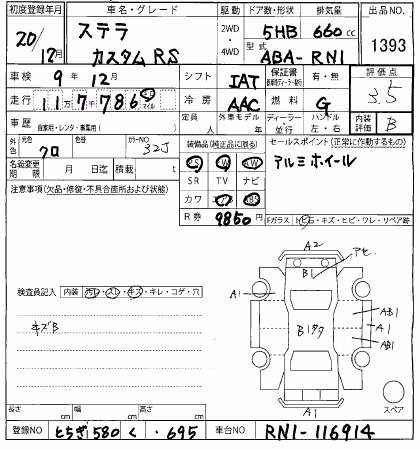 初度登録年月 車名・グレード 駆動 ドア数・形状 排気量 出品NO.
20/12月 ステラ カスタムRS 2WD・4WD 5HB 660cc 1393
型式 ABA-RN1
車検 9年12月 シフト IAT 保証書 有・無 評価点 3.5
走行 11万7千786 km マイル 冷房 AAC 燃料 G
車歴 自家用・レンタ・事業用( ) 定員 人 外車モデル 年 ディーラー・並行 ハンドル 左・右 内装評価 B
外色 元色 クロ 色替 カラーNO 32J 装備品(純正品に限る) セールスポイント(正常に作動するもの)
名義変更期限 月 日迄 積載 t PS PW アルミホイール
注意事項(欠品・修復・不具合箇所および状態) SR TV ナビ
カワ エアB ABS
R券 9850円 Fガラス トビ石・キズ・ヒビ・ワレ・リペア跡
A2
アセ
B1
検査員記入 内装 汚レ・スレ・キズ・キレ・コゲ・穴 A1
AB1
キズB Bリクク A1
AB1
スペア
長さ cm 幅 cm 高さ cm A1
登録NO とちぎ 580 く ・695 車台NO RN1-116914